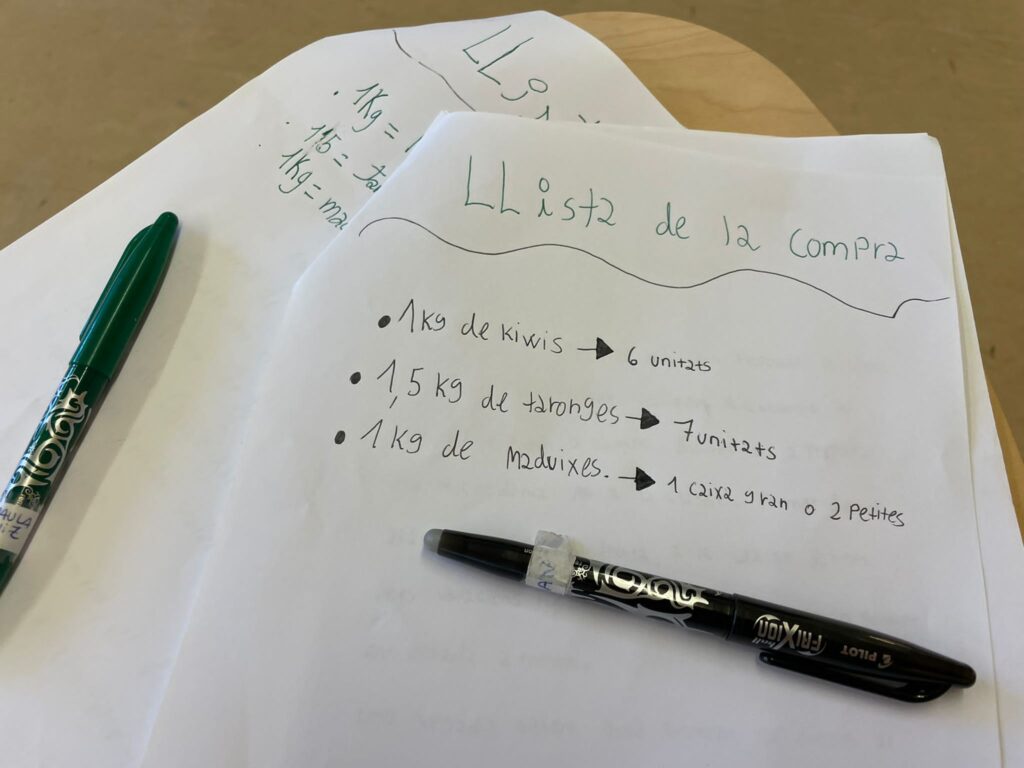 LLista de la compra
• 1kg de kiwis → 6 unitats
• 1,5 kg de taronges → 7 unitats
• 1 kg de maduixes. → 1 caixa gran o 2 petites
LLis
• 1Kg =
• 1,5 =
1Kg =
PILOT
FRIXION